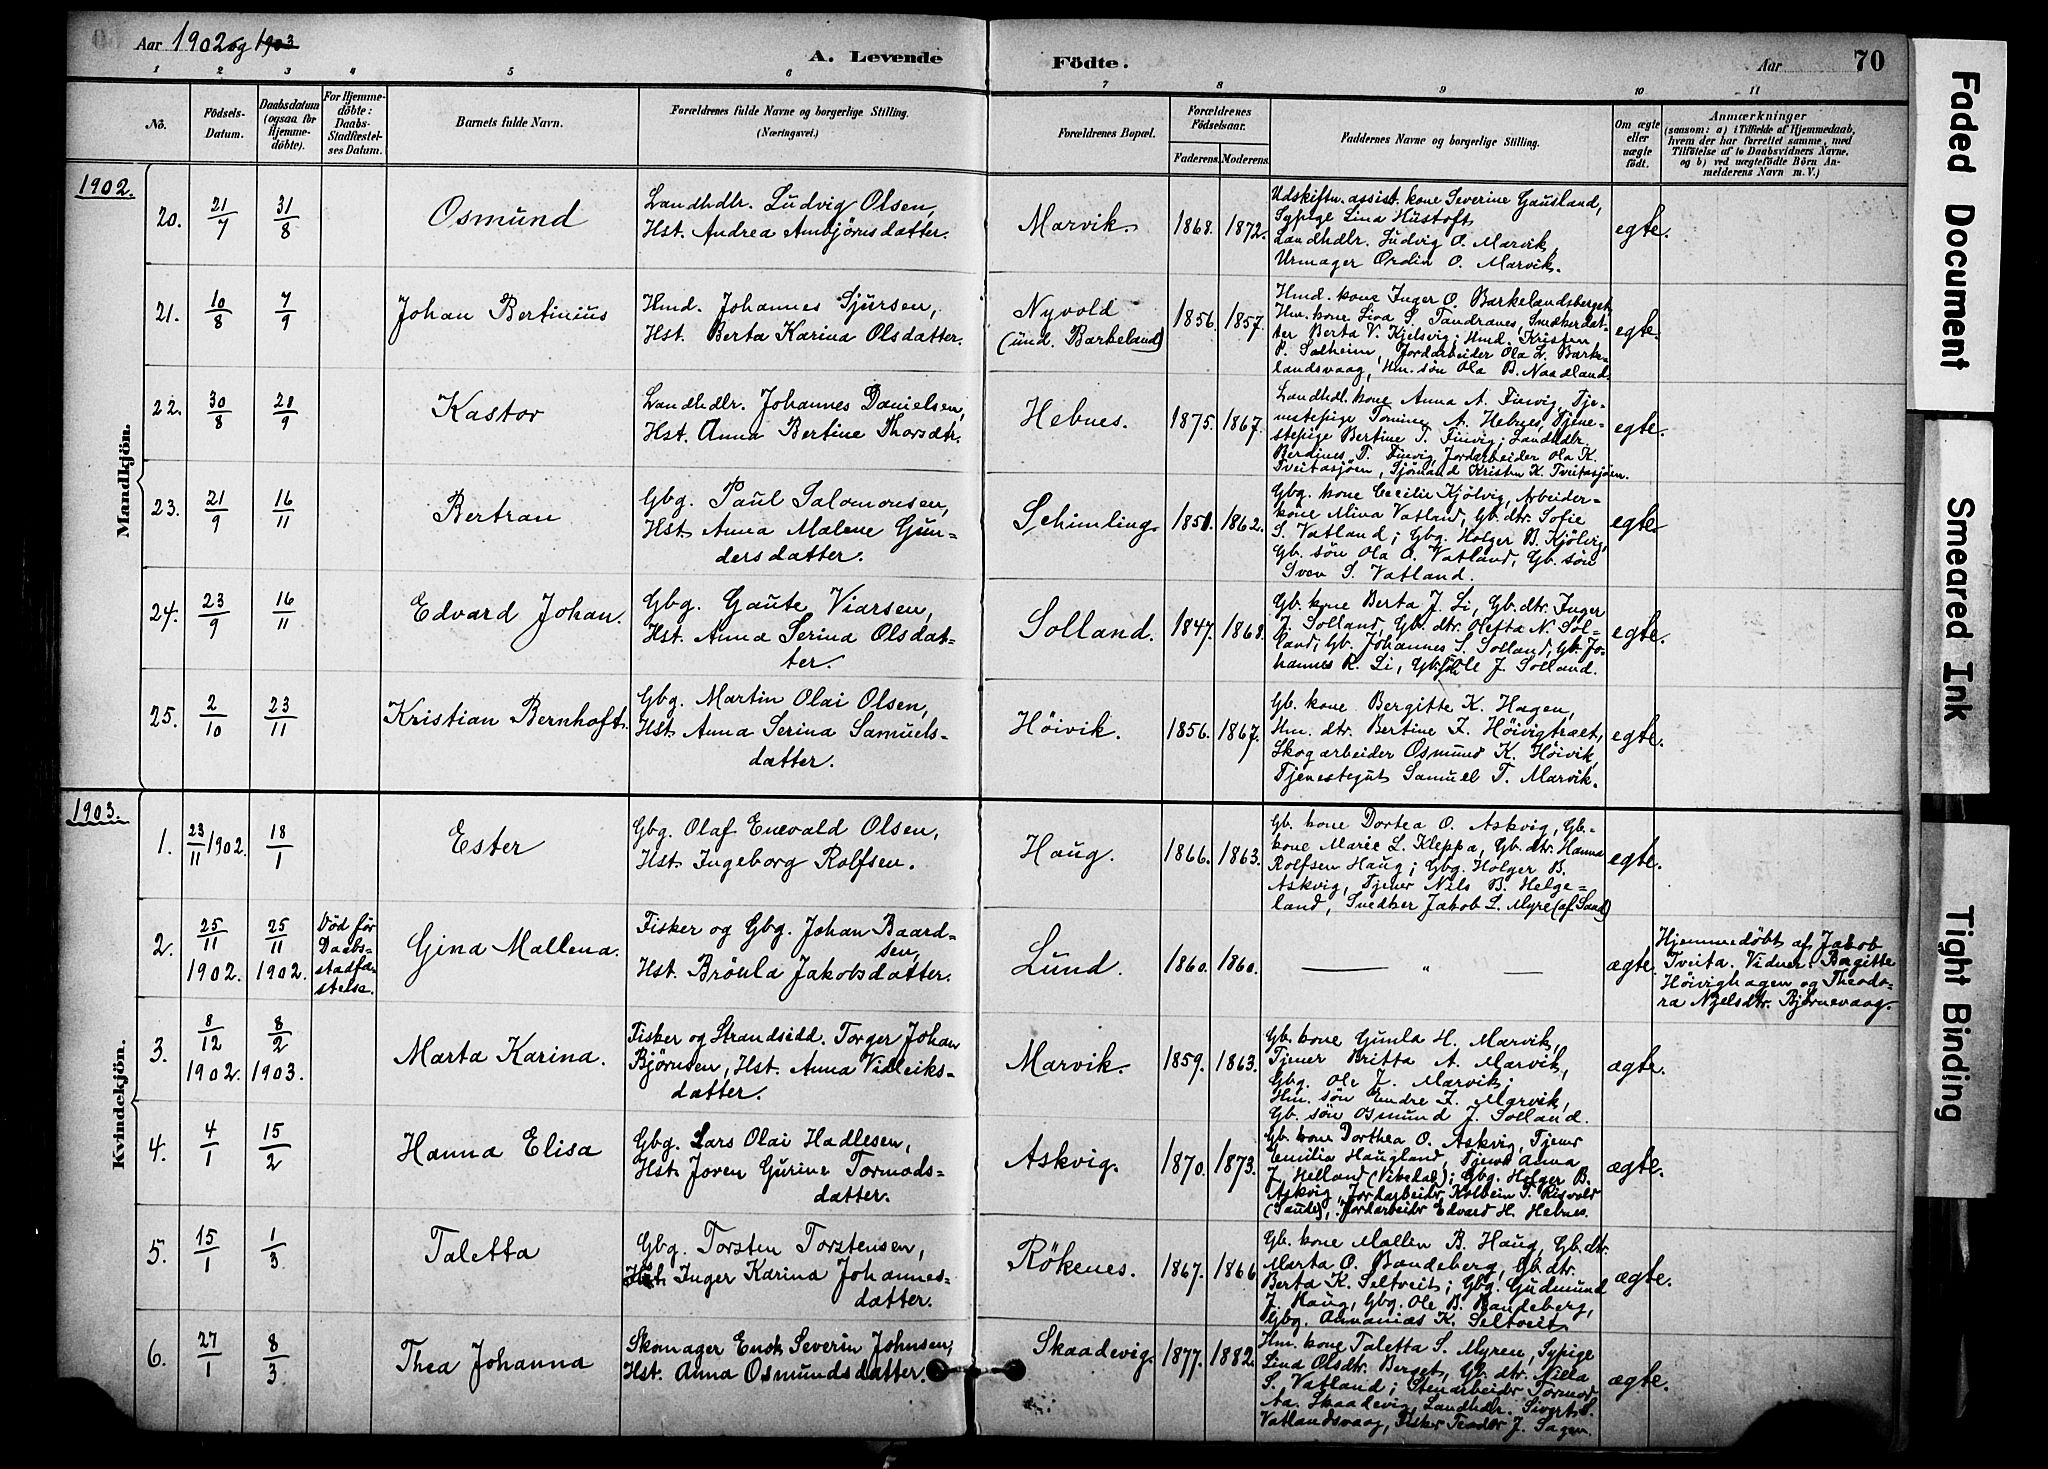 Aar 1902 og 1903
A. Levende Födte.
Aar 70
1 2 3 4 5 6 7 8 9 10 11
No.
Födsels-Datum.
Daabsdatum (ogsaa for Hjemme-döbte).
For Hjemme-döbte: Daabs-Stadfæstel-ses Datum.
Barnets fulde Navn.
Forældrenes fulde Navne og borgerlige Stilling.
(Næringsvei.)
Forældrenes Bopæl.
Forældrenes Födselsaar.
Faderens. Moderens.
Faddernes Navne og borgerlige Stilling.
Om ægte eller uægte födt.
Anmærkninger
(saasom: a) i Tilfælde af Hjemmedaab,
hvem der har forrettet samme, med
Tilföielse af to Daabsvidners Navne.
og b) ved uægtefödte Börn An-
melderens Navn m. V.)
1902.
Mandkjön.
20. 21/7 31/8 Osmund
Landhdlr. Ludvig Olsen,
Hst. Andrea Ambjørnsdatter.
Marvik. 1868. 1872.
Udskiftn. assist. kone Severine Gausland,
Sypige Lina Hustoft,
Landhdlr. Ludvig O. Marvik,
Urmager Ordin O. Marvik.
egte.
21. 10/8 7/9 Johan Bertinius
Hmd. Johannes Sjursen,
Hst. Berta Karina Olsdatter.
Nyvold
(und. Barkeland)
1856. 1857.
Hmd. kone Inger O. Barkelandsberget
Hm. kone Liva S. Tandranes, Snedkerdat-
ter Berta V. Kjelsvig; Hmd. Kristen
P. Solheim, Jordarbeider Ola L. Barke-
landsvaag, Hm. søn Ola B. Naadland.
egte.
22. 30/8 20/9 Kastor
Landhdlr. Johannes Danielsen,
Hst. Anna Bertine Thorsdtr.
Hebnes. 1875. 1867.
Landhdl. kone Anna A. Finvig, Tje-
nestepige Tomine A. Hebnes, Tjene-
stepige Bertine T. Finvig; Landhdlr.
Berdines T. Finvig, Jordarbeider Ola K.
Tveitasjøen, Sjömand Kristen K. Tveitasjøen.
egte.
23. 21/9 16/11 Bertran
Gbg. Paul Salomonsen,
Hst. Anna Malene Gun-
dersdatter.
Schimling. 1850. 1862.
Gbg. kone Cecilie Kjölvig, Arbeider-
kone Mina Vatland, Gb. dtr. Sofie
S. Vatland; Gbg. Holger B. Kjölvig,
Gb. søn Ola O. Vatland, Gb. søn
Sven S. Vatland.
egte.
24. 23/9 16/11 Edvard Johan.
Gbg. Gaute Viarsen,
Hst. Anna Serina Olsdat-
ter.
Solland. 1847. 1868.
Gb. kone Berta J. Li, Gb. dtr. Inger
J. Solland, Gb. dtr. Olefta N. Sol-
land, Gb. Johannes S. Solland, Gb. Jo-
hannes R. Li, Gb. søn Ole J. Solland.
egte.
25. 2/10 23/11 Kristian Bernhoft.
Gbg. Martin Olai Olsen,
Hst. Anna Serina Samuels-
datter.
Höivik. 1856. 1867.
Gb. kone Bergitte K. Hagen,
Hm. dtr. Bertine F. Höivigtræet,
Skogarbeider Osmund K. Höivik,
Tjenestegut Samuel T. Marvik.
egte.
1903.
Kvindekjön.
1. 23/11 1902. 18/1 Ester
Gbg. Olaf Enevald Olsen,
Hst. Ingeborg Rolfsen.
Haug. 1866. 1863.
Gb. kone Dortea O. Askvig, Gb.-
kone Marie L. Kleppa, Gb. dtr. Hanna
Rolfsen Haug; Gbg. Holger B.
Askvig, Tjener Nils B. Helge-
land, Snedker Jakob L. Myre (af Sand)
egte.
2. 25/11 1902. 25/11 1902.
Død før
Daabs-
stadfæ-
stelse.
Gina Mallena.
Fisker og Gbg. Johan Baard-
sen,
Hst. Brönla Jakobsdatter.
Lund. 1860. 1860.
— " —
ægte.
Hjemmedøbt af Jakob
Tveita. Vidner: Bergitte
Höivighagen og Theodo-
ra Njelsdtr. Bjørnevaag.
3. 8/12 1902. 8/2 1903. Marta Karina.
Fisker og Strandsidd. Torger Johan
Bjørnsen, Hst. Anna Vidleiks-
datter.
Marvik. 1859. 1863.
Gb. kone Gunla H. Marvik,
Tjener Britta A. Marvik,
Gbg. Ole J. Marvik;
Hm. søn Endre F. Marvik,
Gb. søn Osmund J. Solland.
ægte.
4. 4/1 15/2 Hanna Elisa
Gbg. Lars Olai Hadlesen,
Hst. Joren Gurine Tormods-
datter.
Askvig. 1870. 1873.
Gb. kone Dorthea O. Askvig, Tjener
Emilia Haugland, Tjener Anna
J. Helland (Vikedal); Gbg. Holger B.
Askvig, Jordarbeidr. Kolbein T. Risvold
(Saude), Jordarbeidr Edvard H. Hebnes.
ægte.
5. 15/1 1/3 Taletta
Gbg. Torsten Torstensen,
Hst. Inger Karina Johannes-
datter.
Rökenes. 1867. 1866.
Gb. kone Mallen B. Haug, Gb. dtr.
Marta O. Bandeberg, Gb. dtr.
Berta K. Seltveit; Gbg. Gudmund
J. Haug, Gbg. Ole B. Bandeberg,
Gbg. Annanias K. Seltveit.
ægte.
6. 27/1 8/3 Thea Johanna
Skomager Enok Severin Johnsen,
Hst. Anna Osmundsdatter.
Skaadevig. 1877. 1882.
Hm. kone Taletta S. Myren, Sypige
Lina Olsdtr. Berget, Gb. dtr. Nilla
S. Vatland; Stenarbeidr Tormod
Aa. Skaadevig, Landhdlr. Sivert S.
Vatlandsvaag, Fisker Teodor J. Sagen.
ægte.
Faded Document
Smeared Ink
Tight Binding